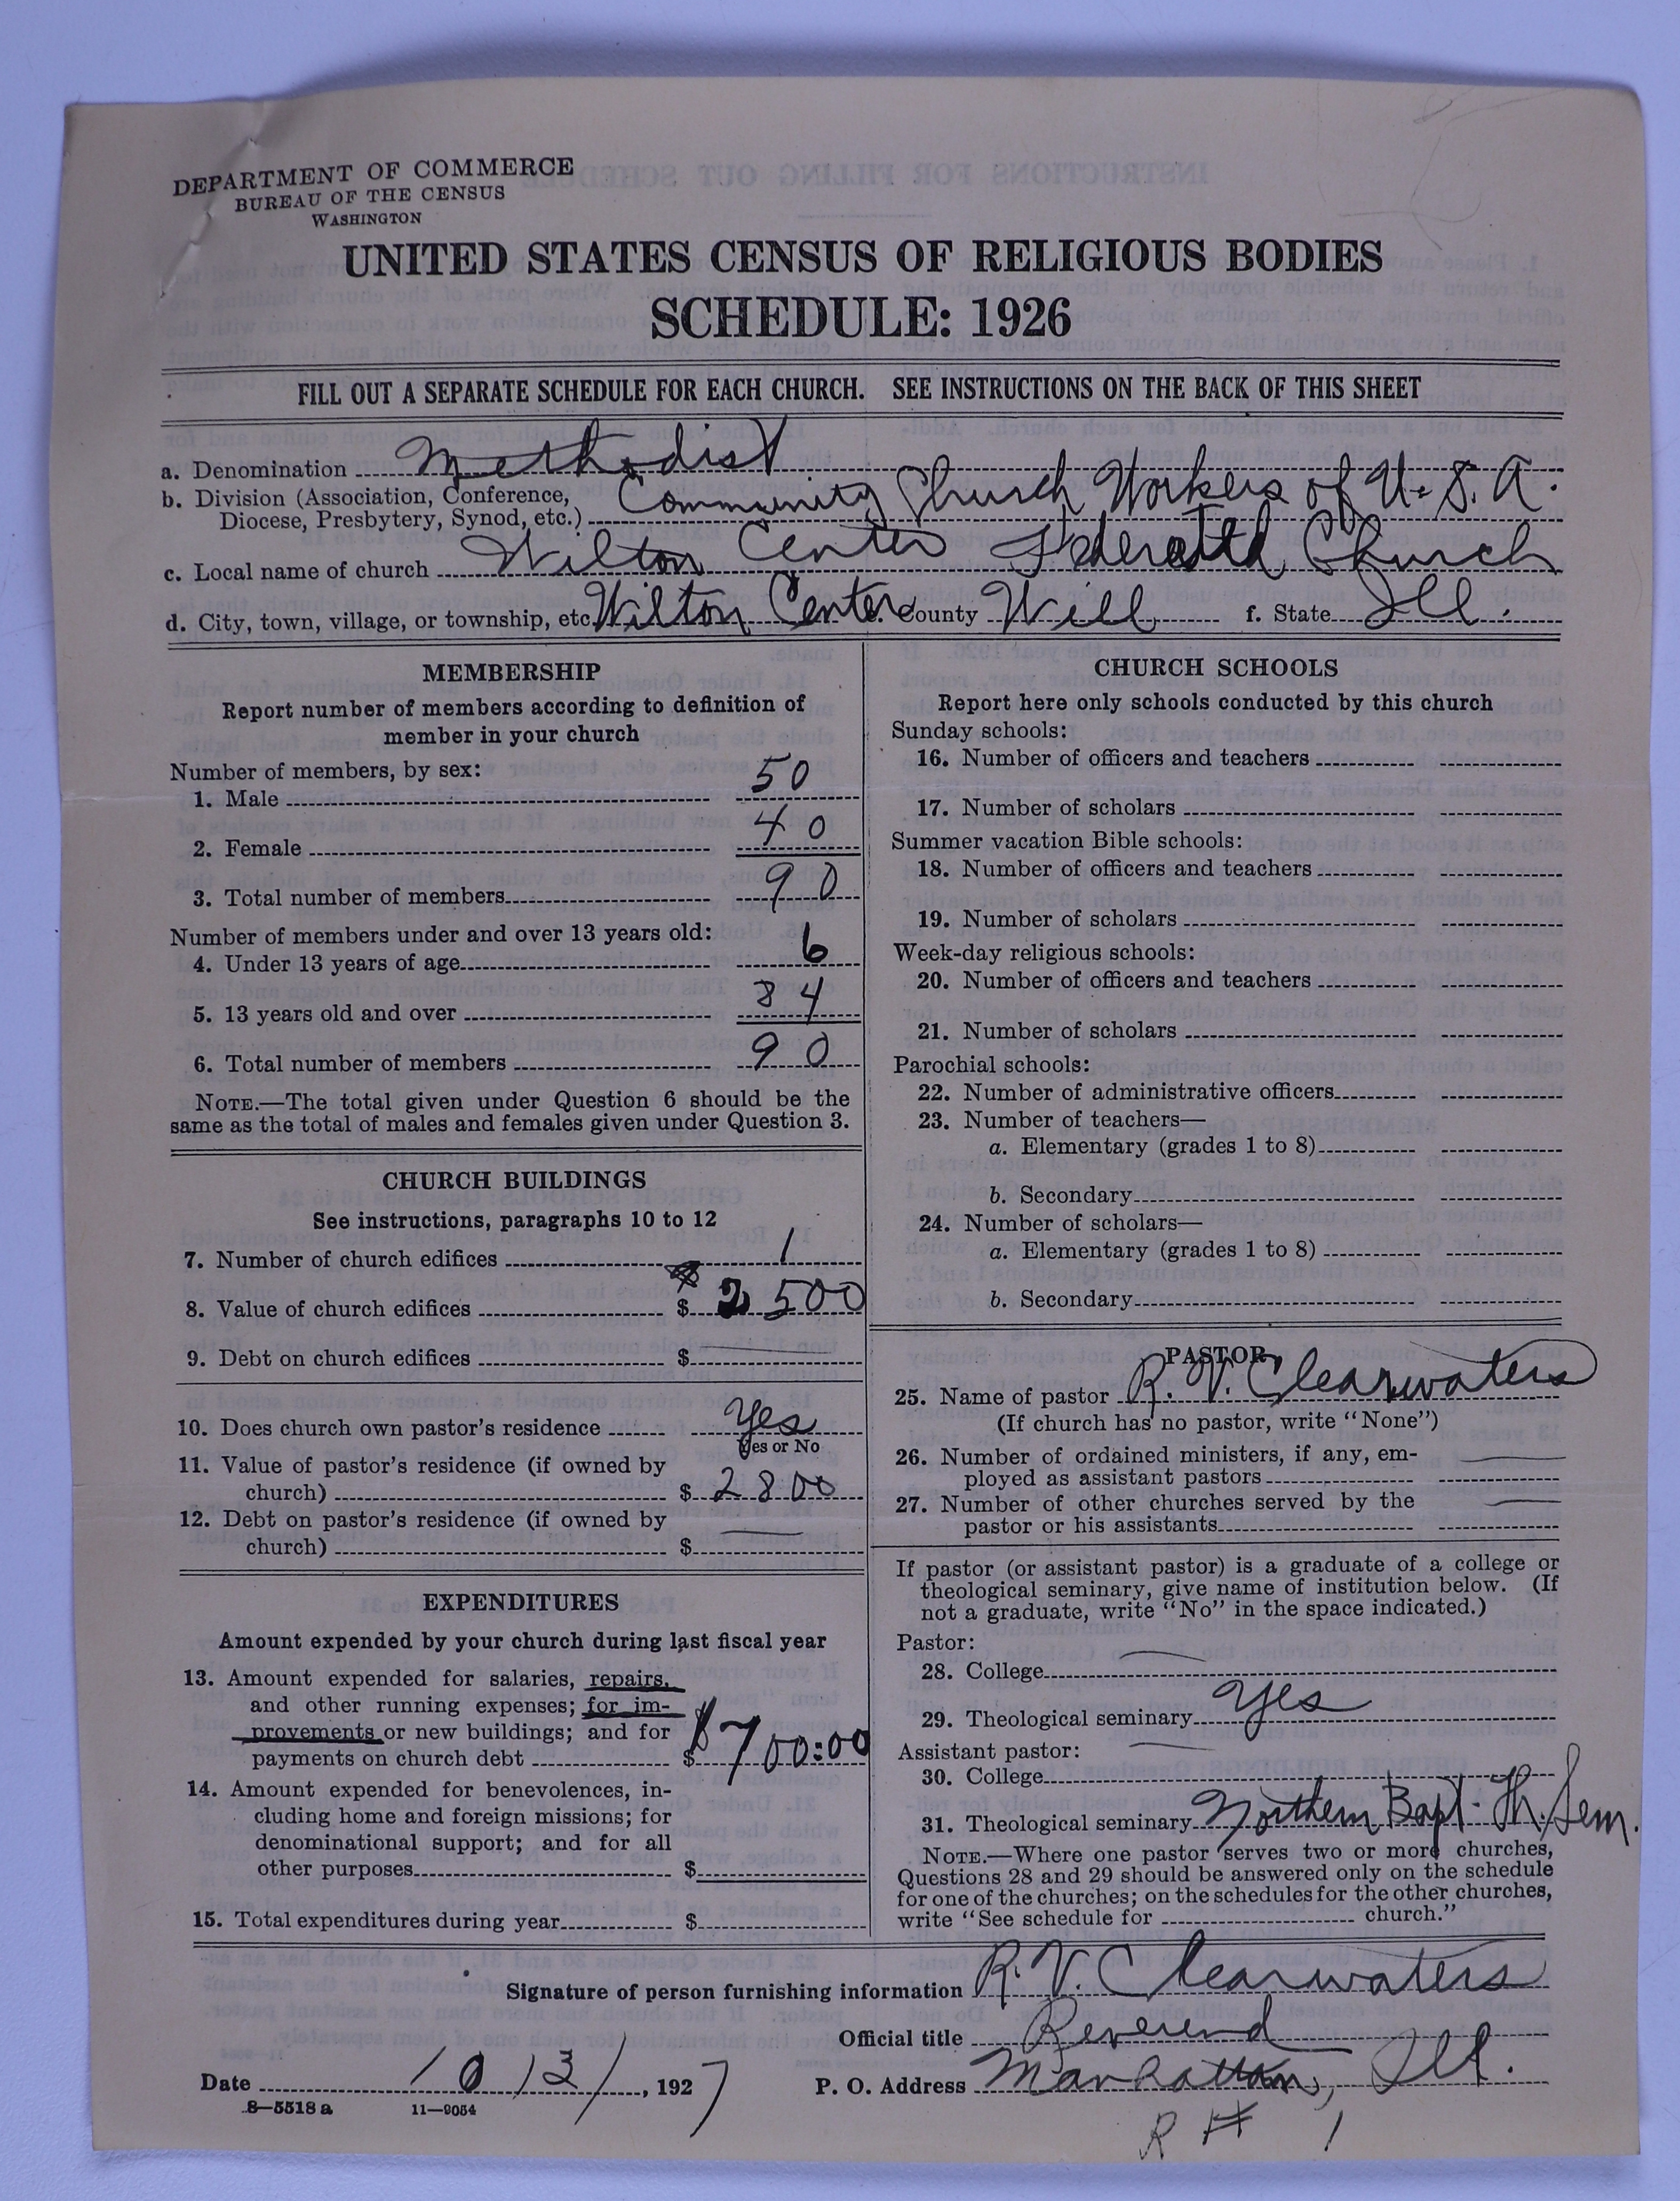 DEPARTMENT OF COMMERCE
BUREAU OF THE CENSUS
WASHINGTON
UNITED STATES CENSUS OF RELIGIOUS BODIES
SCHEDULE: 1926
FILL OUT A SEPARATE SCHEDULE FOR EACH CHURCH. SEE INSTRUCTIONS ON THE BACK OF THIS SHEET
a. Denomination Methodist
b. Division (Association, Conference, Diocese, Presbytery, Synod, etc.) Community Church Workers of U.S.A.
c. Local name of church Wilton Center Federated Church
d. City, town, village, or township, etc. Wilton Center e. County Will f. State Ill.
MEMBERSHIP
Report number of members according to definition of
member in your church
Number of members, by sex:
1. Male 50
2. Female 40
3. Total number of members 90
Number of members under and over 13 years old:
4. Under 13 years of age 6
5. 13 years old and over 84
6. Total number of members 90
NOTE.—The total given under Question 6 should be the
same as the total of males and females given under Question 3.
CHURCH BUILDINGS
See instructions, paragraphs 10 to 12
7. Number of church edifices 1
8. Value of church edifices $ 2500
9. Debt on church edifices $
10. Does church own pastor's residence Yes
Yes or No
11. Value of pastor's residence (if owned by
church) $ 2800
12. Debt on pastor's residence (if owned by
church) $ —
EXPENDITURES
Amount expended by your church during last fiscal year
13. Amount expended for salaries, repairs,
and other running expenses; for im-
provements or new buildings; and for
payments on church debt $ $700:00
14. Amount expended for benevolences, in-
cluding home and foreign missions; for
denominational support; and for all
other purposes $
15. Total expenditures during year $
CHURCH SCHOOLS
Report here only schools conducted by this church
Sunday schools:
16. Number of officers and teachers
17. Number of scholars
Summer vacation Bible schools:
18. Number of officers and teachers
19. Number of scholars
Week-day religious schools:
20. Number of officers and teachers
21. Number of scholars
Parochial schools:
22. Number of administrative officers
23. Number of teachers—
a. Elementary (grades 1 to 8)
b. Secondary
24. Number of scholars—
a. Elementary (grades 1 to 8)
b. Secondary
PASTOR
25. Name of pastor R. V. Clearwaters
(If church has no pastor, write "None")
26. Number of ordained ministers, if any, em-
ployed as assistant pastors —
27. Number of other churches served by the
pastor or his assistants —
If pastor (or assistant pastor) is a graduate of a college or
theological seminary, give name of institution below. (If
not a graduate, write "No" in the space indicated.)
Pastor:
28. College —
29. Theological seminary Yes
Assistant pastor: —
30. College
31. Theological seminary Northern Bapt. Th. Sem.
NOTE.—Where one pastor serves two or more churches,
Questions 28 and 29 should be answered only on the schedule
for one of the churches; on the schedules for the other churches,
write "See schedule for church."
Signature of person furnishing information R. V. Clearwaters
Official title Reverend
Date 10/13/, 1927 P. O. Address Manhattan, Ill.
R # 1
8—5518 a 11—9054